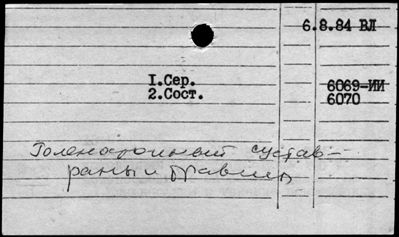 6.8.84 ВЛ
1.Сер.
2.Сост.
6069-ИИ
6070
Голеностопный сустав –
раны и травмы